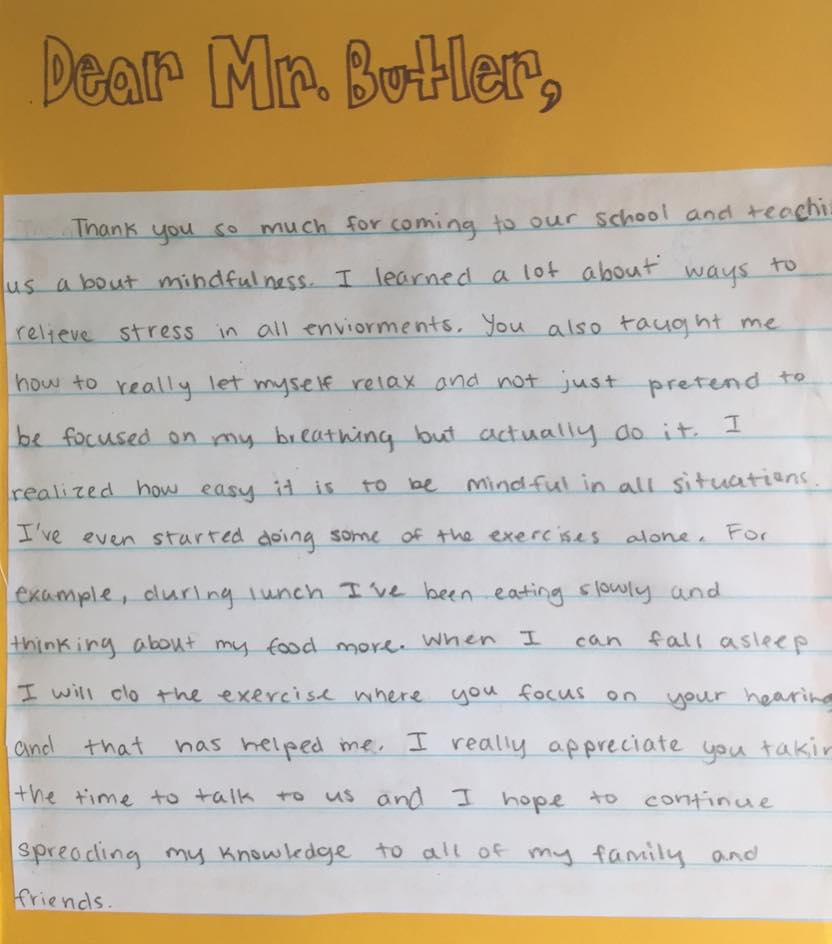 Dear Mr. Butler,
Thank you so much for coming to our school and teachi
us about mindfulness. I learned a lot about ways to
relieve stress in all enviorments. You also taught me
how to really let myself relax and not just pretend to
be focused on my breathing but actually do it. I
realized how easy it is to be mindful in all situations.
I've even started doing some of the exercises alone. For
example, during lunch I've been eating slowly and
thinking about my food more. When I can fall asleep
I will do the exercise where you focus on your hearing
and that has helped me. I really appreciate you takin
the time to talk to us and I hope to continue
spreading my knowledge to all of my family and
friends.